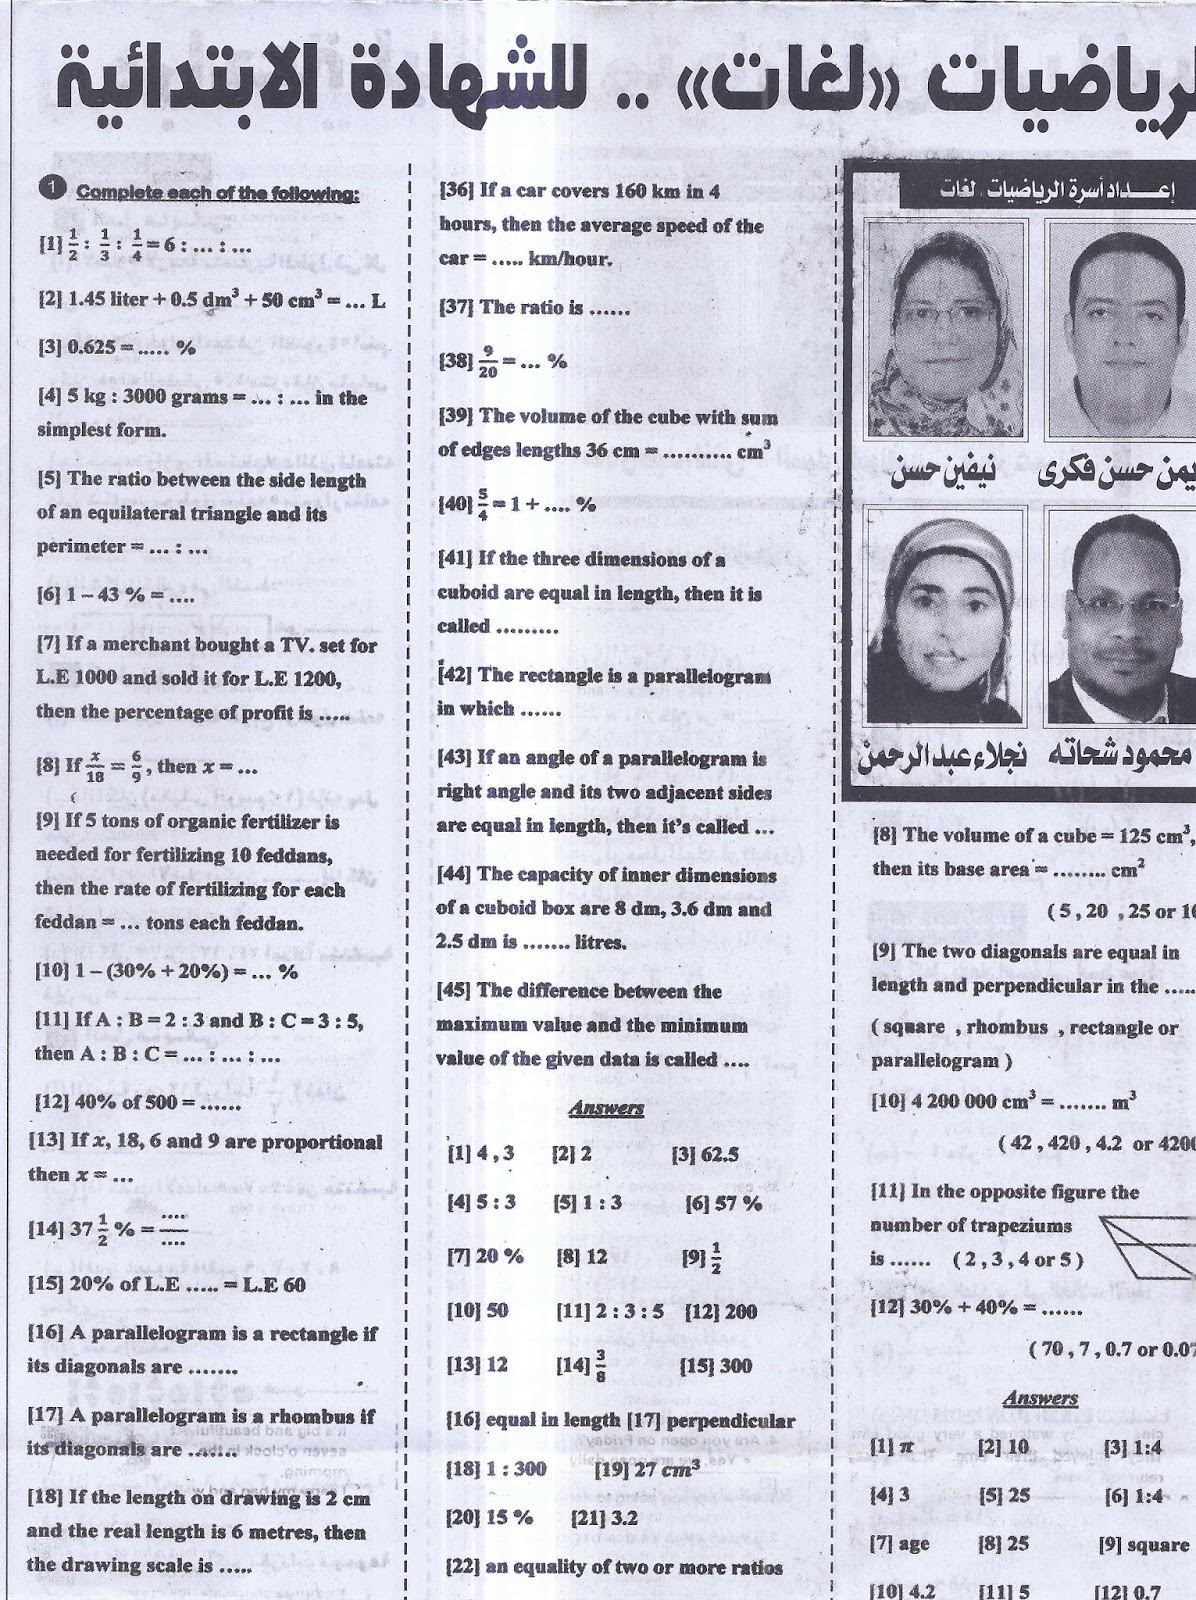 لرياضيات «لغات» .. للشهادة الابتدائية
1 Complete each of the following:
[1] 1/2 : 1/3 : 1/4 = 6 : ... : ...
[2] 1.45 liter + 0.5 dm³ + 50 cm³ = ... L
[3] 0.625 = ..... %
[4] 5 kg : 3000 grams = ... : ... in the
simplest form.
[5] The ratio between the side length
of an equilateral triangle and its
perimeter = ... : ...
[6] 1 – 43 % = ....
[7] If a merchant bought a TV. set for
L.E 1000 and sold it for L.E 1200,
then the percentage of profit is .....
[8] If x/18 = 6/9 , then x = ...
[9] If 5 tons of organic fertilizer is
needed for fertilizing 10 feddans,
then the rate of fertilizing for each
feddan = ... tons each feddan.
[10] 1 – (30% + 20%) = ... %
[11] If A : B = 2 : 3 and B : C = 3 : 5,
then A : B : C = ... : ... : ...
[12] 40% of 500 = ......
[13] If x, 18, 6 and 9 are proportional
then x = ...
[14] 37 1/2 % = ..../....
[15] 20% of L.E ..... = L.E 60
[16] A parallelogram is a rectangle if
its diagonals are .......
[17] A parallelogram is a rhombus if
its diagonals are .......
[18] If the length on drawing is 2 cm
and the real length is 6 metres, then
the drawing scale is .....
[36] If a car covers 160 km in 4
hours, then the average speed of the
car = ..... km/hour.
[37] The ratio is ......
[38] 9/20 = ... %
[39] The volume of the cube with sum
of edges lengths 36 cm = .......... cm³
[40] 5/4 = 1 + .... %
[41] If the three dimensions of a
cuboid are equal in length, then it is
called .........
[42] The rectangle is a parallelogram
in which ......
[43] If an angle of a parallelogram is
right angle and its two adjacent sides
are equal in length, then it's called ...
[44] The capacity of inner dimensions
of a cuboid box are 8 dm, 3.6 dm and
2.5 dm is ....... litres.
[45] The difference between the
maximum value and the minimum
value of the given data is called ....
Answers
[1] 4 , 3 [2] 2 [3] 62.5
[4] 5 : 3 [5] 1 : 3 [6] 57 %
[7] 20 % [8] 12 [9] 1/2
[10] 50 [11] 2 : 3 : 5 [12] 200
[13] 12 [14] 3/8 [15] 300
[16] equal in length [17] perpendicular
[18] 1 : 300 [19] 27 cm³
[20] 15 % [21] 3.2
[22] an equality of two or more ratios
إعداد أسرة الرياضيات . لغات
يمن حسن فكرى
نيفين حسن
محمود شحاته
نجلاء عبد الرحمن
[8] The volume of a cube = 125 cm³,
then its base area = ........ cm²
( 5 , 20 , 25 or 10
[9] The two diagonals are equal in
length and perpendicular in the .....
( square , rhombus , rectangle or
parallelogram )
[10] 4 200 000 cm³ = ....... m³
( 42 , 420 , 4.2 or 4200
[11] In the opposite figure the
number of trapeziums
is ...... ( 2 , 3 , 4 or 5 )
[12] 30% + 40% = ......
( 70 , 7 , 0.7 or 0.07
Answers
[1] π [2] 10 [3] 1:4
[4] 3 [5] 25 [6] 1:4
[7] age [8] 25 [9] square
[10] 4.2 [11] 5 [12] 0.7